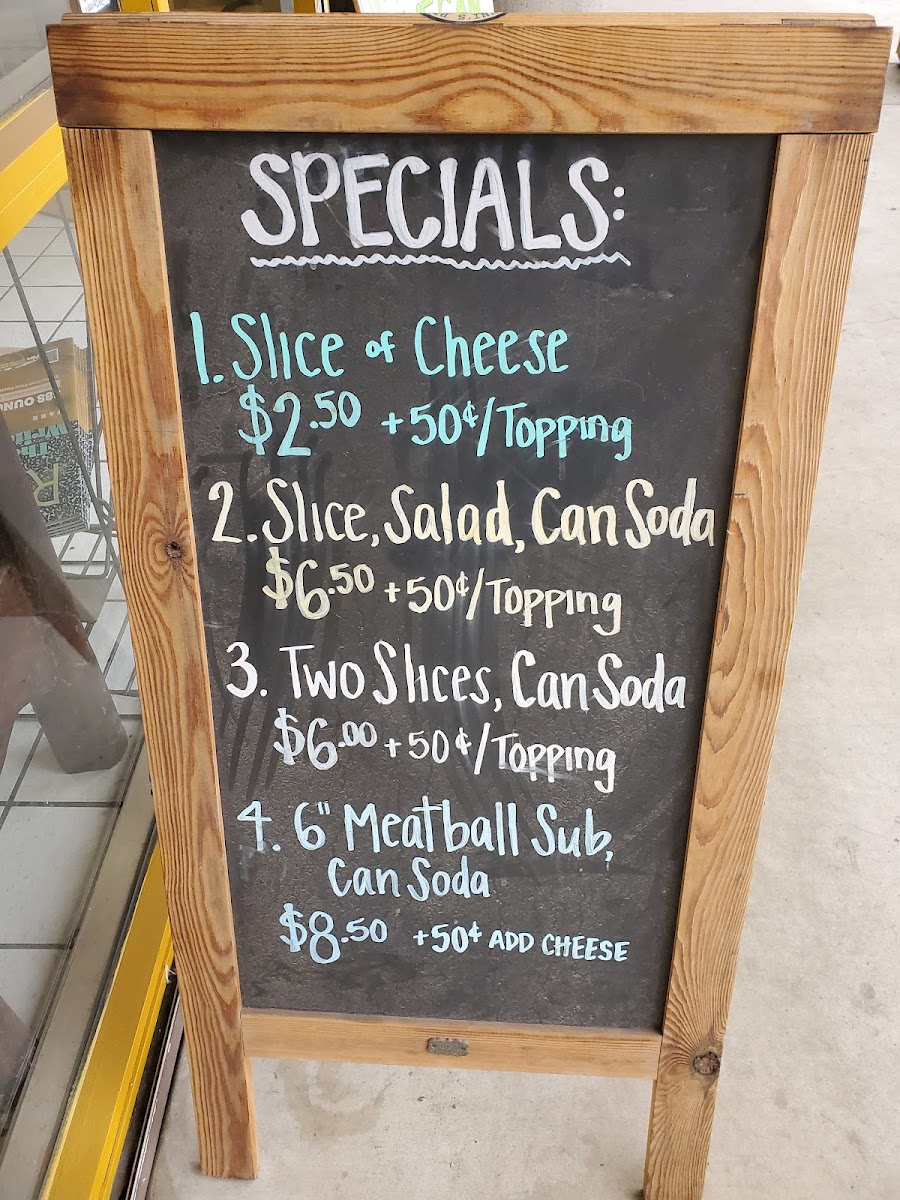 SPECIALS:
1. Slice of Cheese
$2.50 +50¢/Topping
2. Slice, Salad, Can Soda
$6.50 +50¢/Topping
3. Two Slices, Can Soda
$6.00 +50¢/Topping
4. 6" Meatball Sub,
Can Soda
$8.50 +50¢ ADD CHEESE